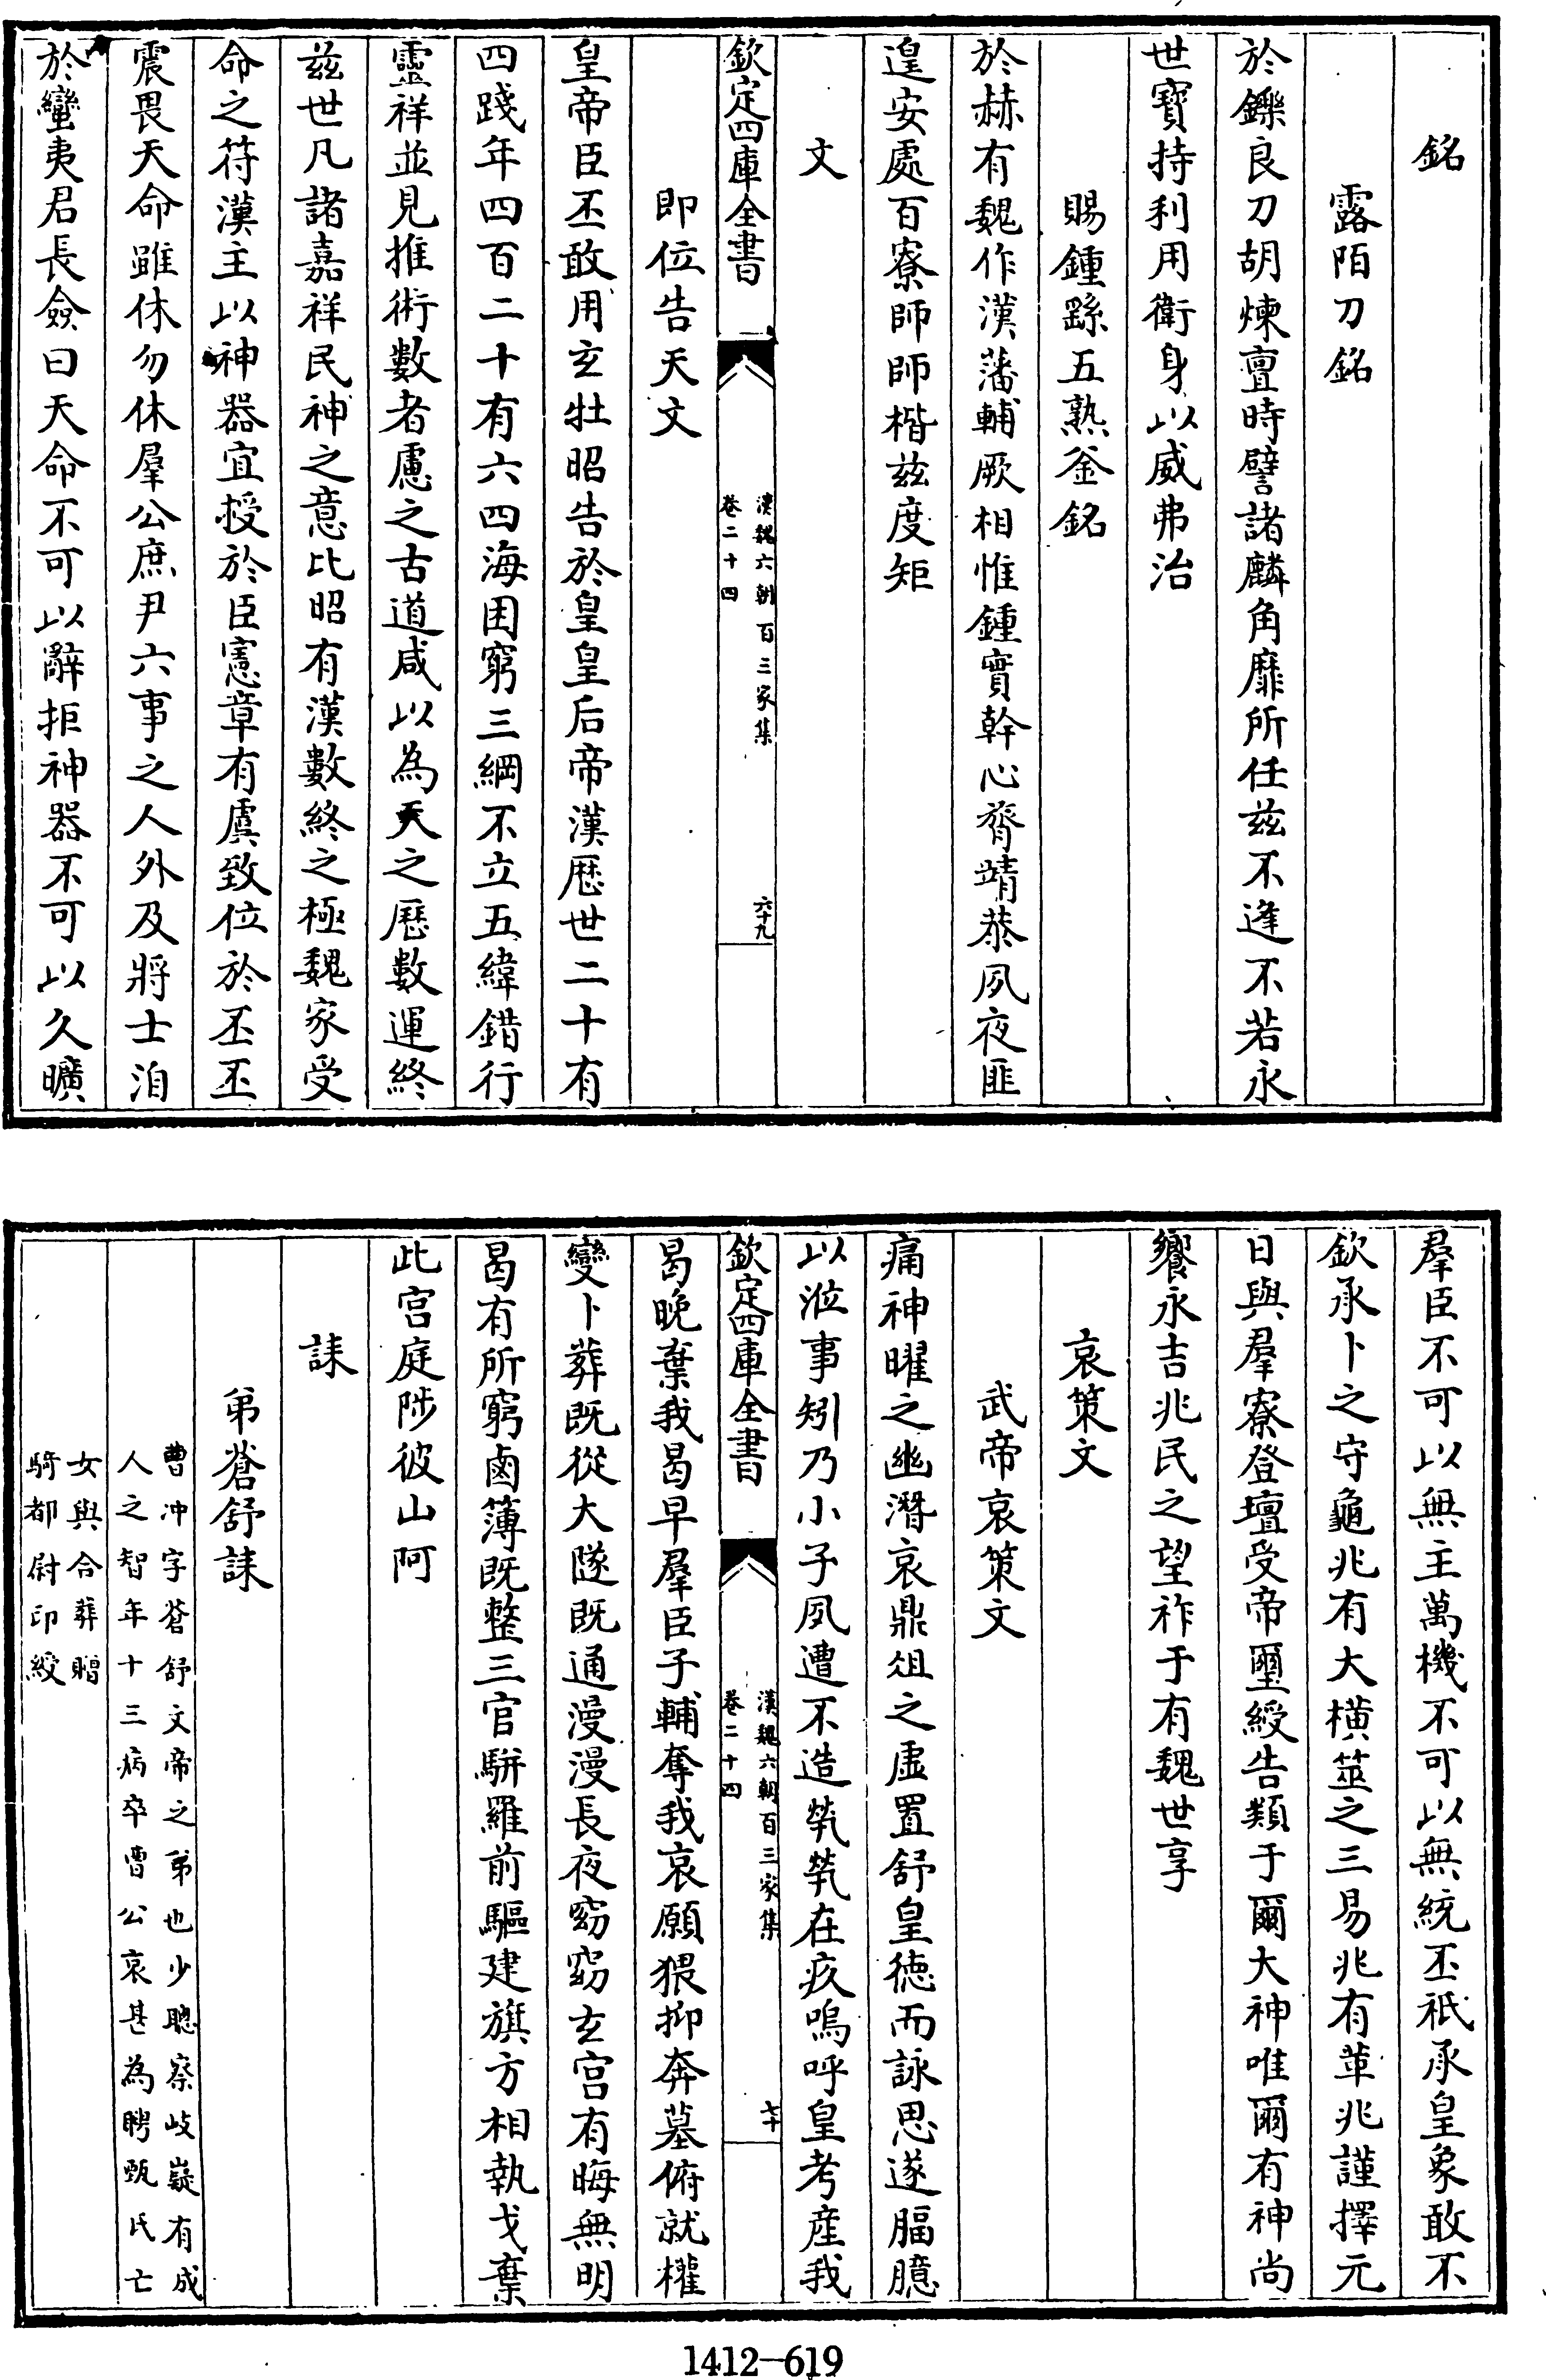 銘
露陌刀銘
於鑠良刀胡煉亶時譬諸麟角靡所任兹不逢不若永
世寳持利用衛身以威弗治
賜鍾繇五熟釜銘
於赫有魏作漢藩輔厥相惟鍾實幹心膂靖恭夙夜匪
遑安處百寮師師楷兹度矩
文
欽定四庫全書
漢魏六朝百三家集
卷二十四
六十九
即位告天文
皇帝臣丕敢用玄牡昭告於皇皇后帝漢厯世二十有
四踐年四百二十有六四海困窮三綱不立五緯錯行
靈祥並見推術數者慮之古道咸以為天之厯數運終
兹世凡諸嘉祥民神之意比昭有漢數終之極魏家受
命之符漢主以神器宜授於臣憲章有虞致位於丕丕
震畏天命雖休勿休羣公庶尹六事之人外及將士洎
於蠻夷君長僉曰天命不可以辭拒神器不可以久曠
羣臣不可以無主萬機不可以無統丕祇承皇象敢不
欽承卜之守龜兆有大横筮之三易兆有革兆謹擇元
日與羣寮登壇受帝璽綬告類于爾大神唯爾有神尚
饗永吉兆民之望祚于有魏世享
哀策文
武帝哀策文
痛神曜之幽潛哀鼎俎之虚置舒皇徳而詠思遂腷臆
以涖事矧乃小子夙遭不造煢煢在疚嗚呼皇考産我
曷晚棄我曷早羣臣子輔奪我哀願猥抑奔墓俯就權
變卜葬既從大隧既通漫漫長夜窈窈玄宫有晦無明
曷有所窮鹵簿既整三官駢羅前驅建旗方相執戈棄
此宫庭陟彼山阿
欽定四庫全書
漢魏六朝百三家集
卷二十四
七十
誄
弟蒼舒誄
曹冲字蒼舒文帝之弟也少聰察岐嶷有成
人之智年十三病卒曹公哀甚為聘甄氏亡
女與合葬贈
騎都尉印綬
1412—619